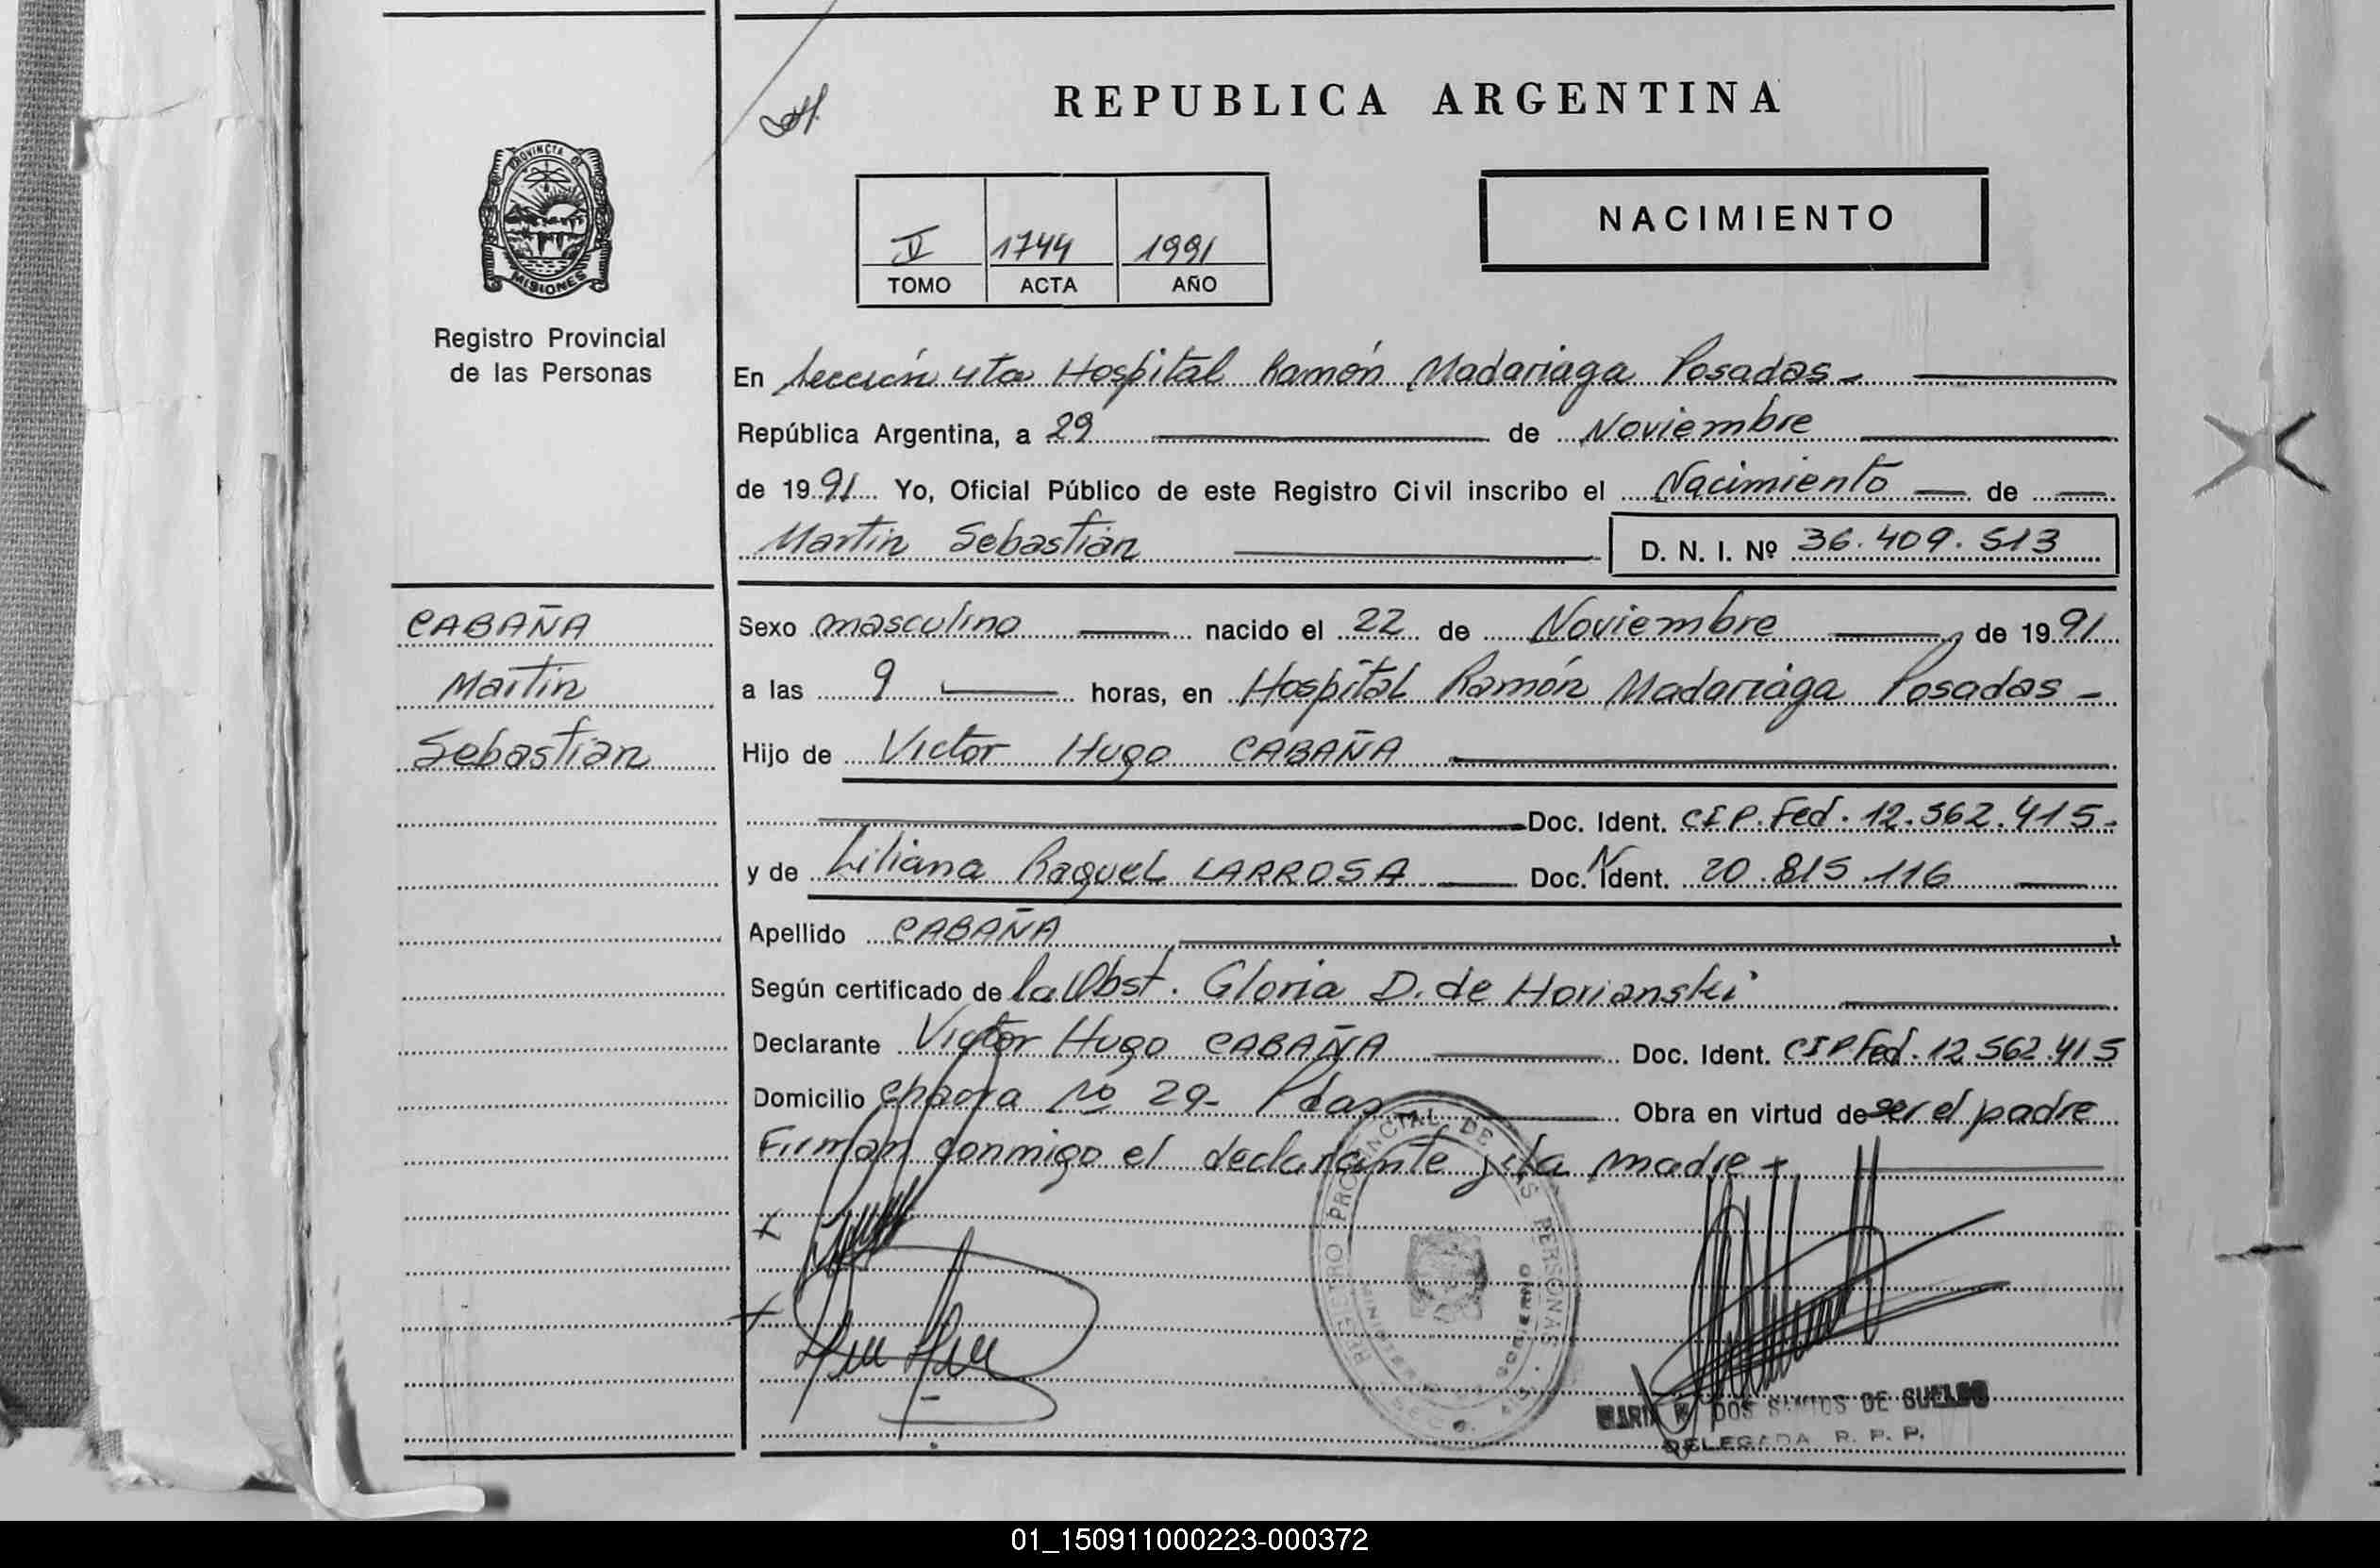 REPUBLICA ARGENTINA
PROVINCIA DE
MISIONES
Registro Provincial
de las Personas
V 1744 1991
TOMO ACTA AÑO
NACIMIENTO
En Sección 4ta Hospital Ramón Madariaga Posadas -
República Argentina, a 29 de Noviembre
de 1991 Yo, Oficial Público de este Registro Civil inscribo el Nacimiento de
Martin Sebastian D. N. I. Nº 36.409.513
CABAÑA
Martin
Sebastian
Sexo masculino nacido el 22 de Noviembre, de 1991
a las 9 horas, en Hospital Ramón Madariaga Posadas -
Hijo de Victor Hugo CABAÑA
Doc. Ident. CIP.Fed. 12.562.415.
y de Liliana Raquel LARROSA Doc. N Ident. 20.815.116
Apellido CABAÑA
Según certificado de la Obst. Gloria D. de Horianski
Declarante Victor Hugo CABAÑA Doc. Ident. CIPFed. 12.562.415
Domicilio Chacra No 29- Pdas Obra en virtud de ser el padre
Firman conmigo el declarante y la madre
REGISTRO PROVINCIAL DE LAS PERSONAS
GOBIERNO
DOS SANTOS DE
DELEGADA R. P. P.
01_150911000223-000372